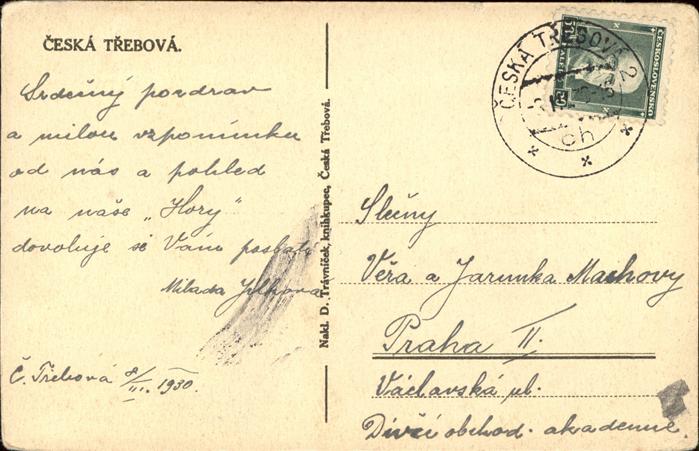 ČESKÁ TŘEBOVÁ.
Srdečný pozdrav
a milou vzpomínku
od nás a pohled
na naše „Hory"
dovoluje si Vám poslati
Milada
Č. Třebová 8/III. 1930.
Nakl. D. Trávníček, knihkupec, Česká Třebová.
ČESKÁ TŘEBOVÁ 2
ch
ČESKOSLOVENSKO
50
Slečny
Věra a Jarunka Machovy
Praha II.
Václavská ul.
Dívčí obchod. akademie.